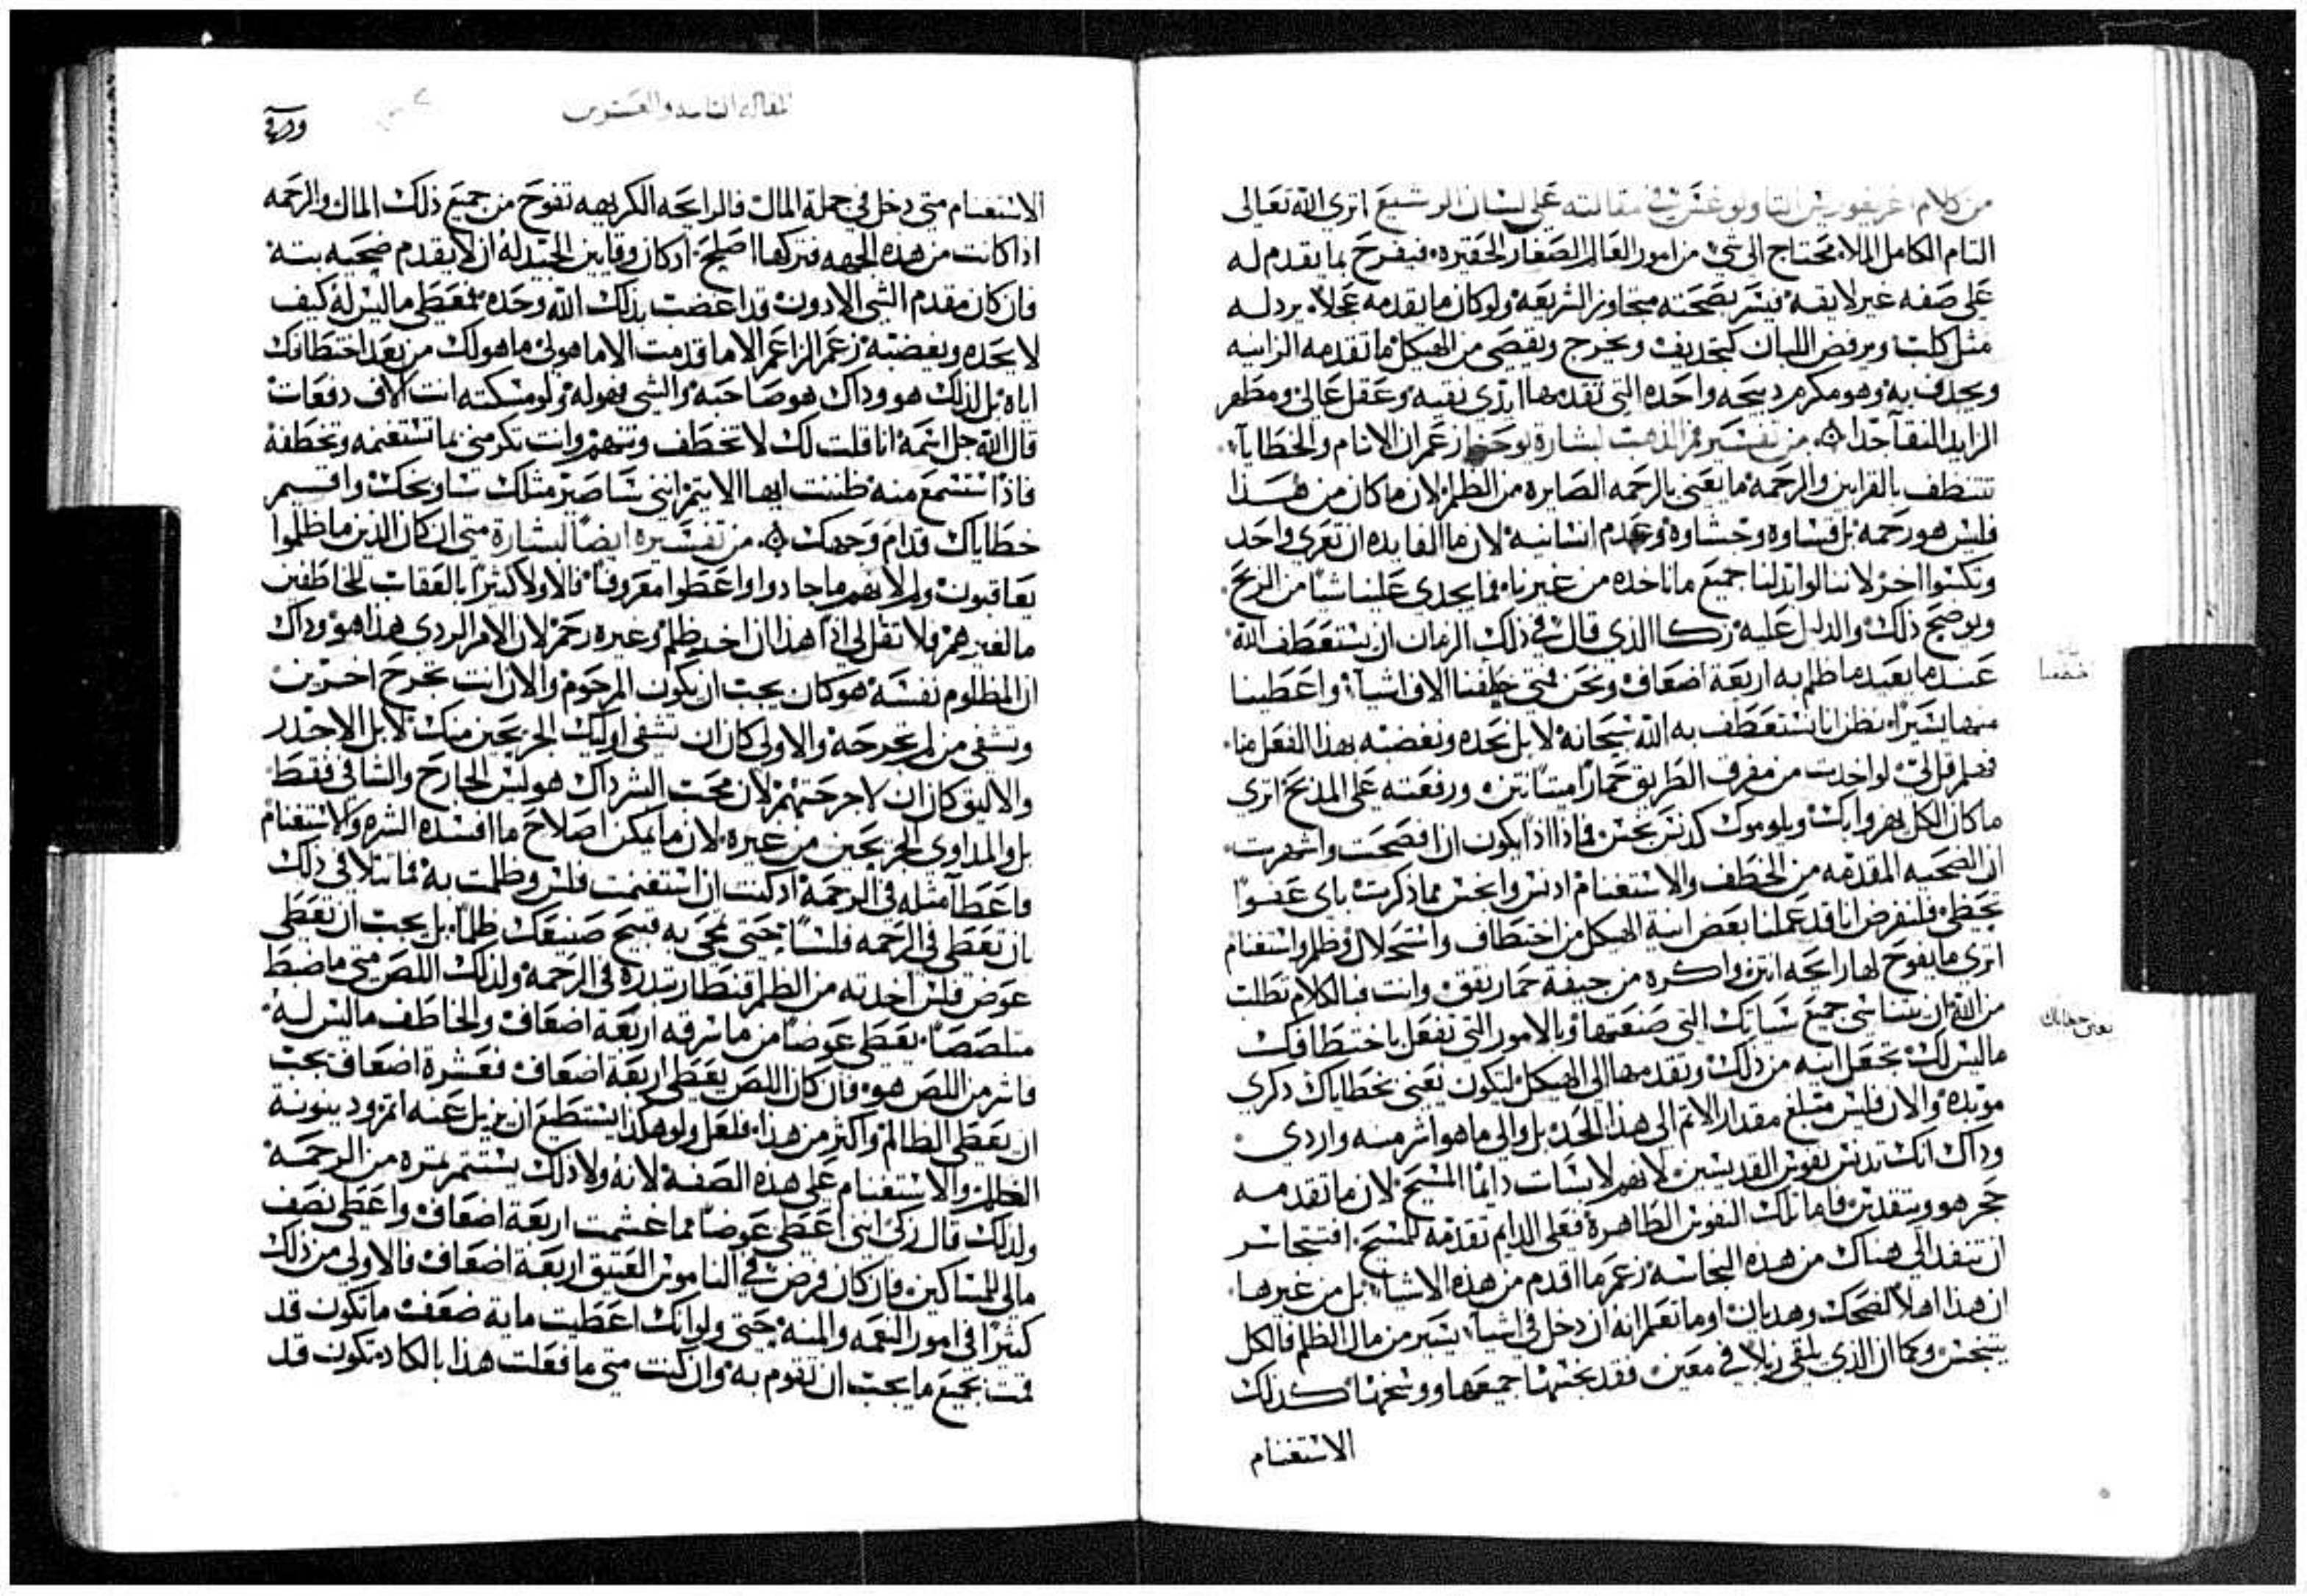 من كلام اغريغوريس التاولوغس في مقالته على لسان الرشيع اترى الله تعالى
التام الكامل الملا يحتاج الى شي من امور العالم الصغار الحقيره فيفرح بما يقدم له
على صفه غير لايقه فيسر بضحيته متجاوز الشريعه ولو كان ما يقدمه عجلا يرد له
مثل كلب ويرفض اللبان كتجديف ويخرج ويقصي من الهيكل ما تقدمه الزانيه
ويحذف به وهو مكرم دبيحه واحده التي تقدمها ايدي نقيه وعقل عالي ومطهر
الزايد النقا جدا من تفسير فم الذهب لبشارة يوحنا زعم ان الانام والخطايا
تتنظف بالقرابين والرحمه ما يعني بالرحمه الصايره من الظلم لان ما كان من هذا
فليس هو رحمه بل قساوه وجشاوة وعدم انسانيه لان ما الفايده ان تعري واحد
وتكسوا اخر لاننا لو ابدلنا جميع ما ناخده من غيرنا فما يجدي علينا شيا من الربح
ويوضح ذلك والدليل عليه زكا الذي قال في ذلك الزمان ان يستعطف الله
عندما يعيد ما ظلم به اربعة اضعاف ونحن فمتى خطفنا الاف اشيا واعطينا
منها يسيرا نظن انا نستعطف به الله سبحانه لا بل نحده ونغضبه بهذا الفعل منا
فعلم قل لي لو اخدت من مفرق الطريق حمارا ميتا نتن ورفعته على المدبح اترى
ما كان الكل يهزوا بك ويلوموك كدنس نجس فماذا اذا يكون ان افصحت واشهرت
ان الضحيه المقدمه من الخطف والاستغنام ادنس وانجس مما ذكرت باي عفوا
تحظى فلنفرض انا قد عملنا بعض انية الهيكل من اختطاف واستحلال وظلم واستغنام
اترى ما يفوح لها رايحه انتن واكره من جيفة حمار نفق وانت فبالكلام تطلب
من الله ان يتناسى جميع سياتك التي صنعتها وبالامور التي تفعل باختطافك
ما ليس لك تجعل انيه من ذلك وتقدمها الى الهيكل لتكون نعني بخطاياك دكرى
موبده والان فليس مبلغ مقدار الاثم الى هذا الحد بل والى ما هو اشر منه واردى
وداك انك تدنس نفوس القديسين لانهم لابسات دايما المسيح لان ما تقدمه
حجر هو ويتقدس فاما تلك النفوس الطاهرة فعلى الدايم تقدمه للمسيح افتتجاسر
ان تنفد الى هناك من هذه النجاسه زعم ما اقدم من هذه الاشيا بل من غيرها
ان هذا اهلا لضحك وهديان او ما تعلم انه ان دخل في اشيا يسير من مال الظلم فالكل
يتنجس وكما ان الذي يلقي زبلا في معين فقد نجسها جميعها ووسخها كذلك
الاستغنام
يعني خطاياك
المقاله الثامنه والعشرون
الاستغنام متى دخل في جملة المال فالرايحه الكريهه تفوح من جميع ذلك المال والرحمه
اذا كانت من هذه الجهه فتركها اصلح اد كان وقايين الجيد له ان لا يقدم ضحيه بتة
فان كان مقدم الشي الادون قد اغضب بذلك الله وحده فمعطي ما ليس له كيف
لا يحده ويغضبه زعم الزاعم الاما قدمت الاما هو لي ما هو لك من بعد اختطافك
اياه بل لذلك هو وداك هو صاحبه والشي فهو له ولو مسكته انت الاف دفعات
قال الله جل اسمه انا قلت لك لا تخطف وتنهم وانت تكرمني بما تستغنمه وتخطفه
فاذا تستمع منه ظننت ايها الاثيم انني سا صير مثلك ساوبخك واقيم
خطاياك قدام وجهك من تفسيره ايضا لبشارة متى ان كان الذين ما ظلموا
يعاقبون ولم لانهم ما جادوا واعطوا معروفا فالاولا كثيرا بالعقاب للخاطفين
ما لغيرهم فلا تقل لي اذا هذا ان اخد ظلم وغيره رحم لان الامر الردي هذا هو وداك
ان المظلوم نفسه هو كان يجب ان يكون المرحوم والان انت تجرح اخرين
وتشفي من لم تجرحه والاولى كان ان تشفي اوليك الجريحين منك لا بل الاجدر
والاليق كان ان لا جرحتهم لان محب البشر داك هو ليس الجارح والشافي فقط
بل والمداوي الجريحين من غيره لان ما يمكن اصلاح ما افسده الشره والاستغنام
فاعطا مثله في الرحمه اد كنت ان استغنمت فلس وظلمت به فما تتلافى ذلك
بان تعطي في الرحمه فلسا حتى تمحي به قبيح صنيعك ظلما بل يجب ان تعطي
عوض فلس اخدته من الظلم قنطار تبدره في الرحمه ولذلك اللص متى ما ضبط
متلصصا يعطي عوضا من ما سرقه اربعة اضعاف والخاطف ما ليس له
فاشر من اللص هو فان كان اللص يعطي اربعة اضعاف فعشرة اضعاف يجب
ان يعطي الظالم واكثر من هذا فلعل ولو هكذا يستطيع ان يزيل عنه اثم ودينونة
الظلم والاستغنام على هذه الصفه لانه ولا ذلك يستثمر ثمره من الرحمه
ولذلك قال زكي انني اعطي عوضا مما غشمت اربعة اضعاف واعطي نصف
مالي للمساكين فان كان فرض في الناموس العتيق اربعة اضعاف فالاولى من ذلك
كثيرا في امور النعمه والمنه حتى ولو انك اعطيت ماية ضعف ما تكون قد
قمت بجميع ما يجب ان تقوم به وان كنت متى ما فعلت هذا بالكاد تكون قد